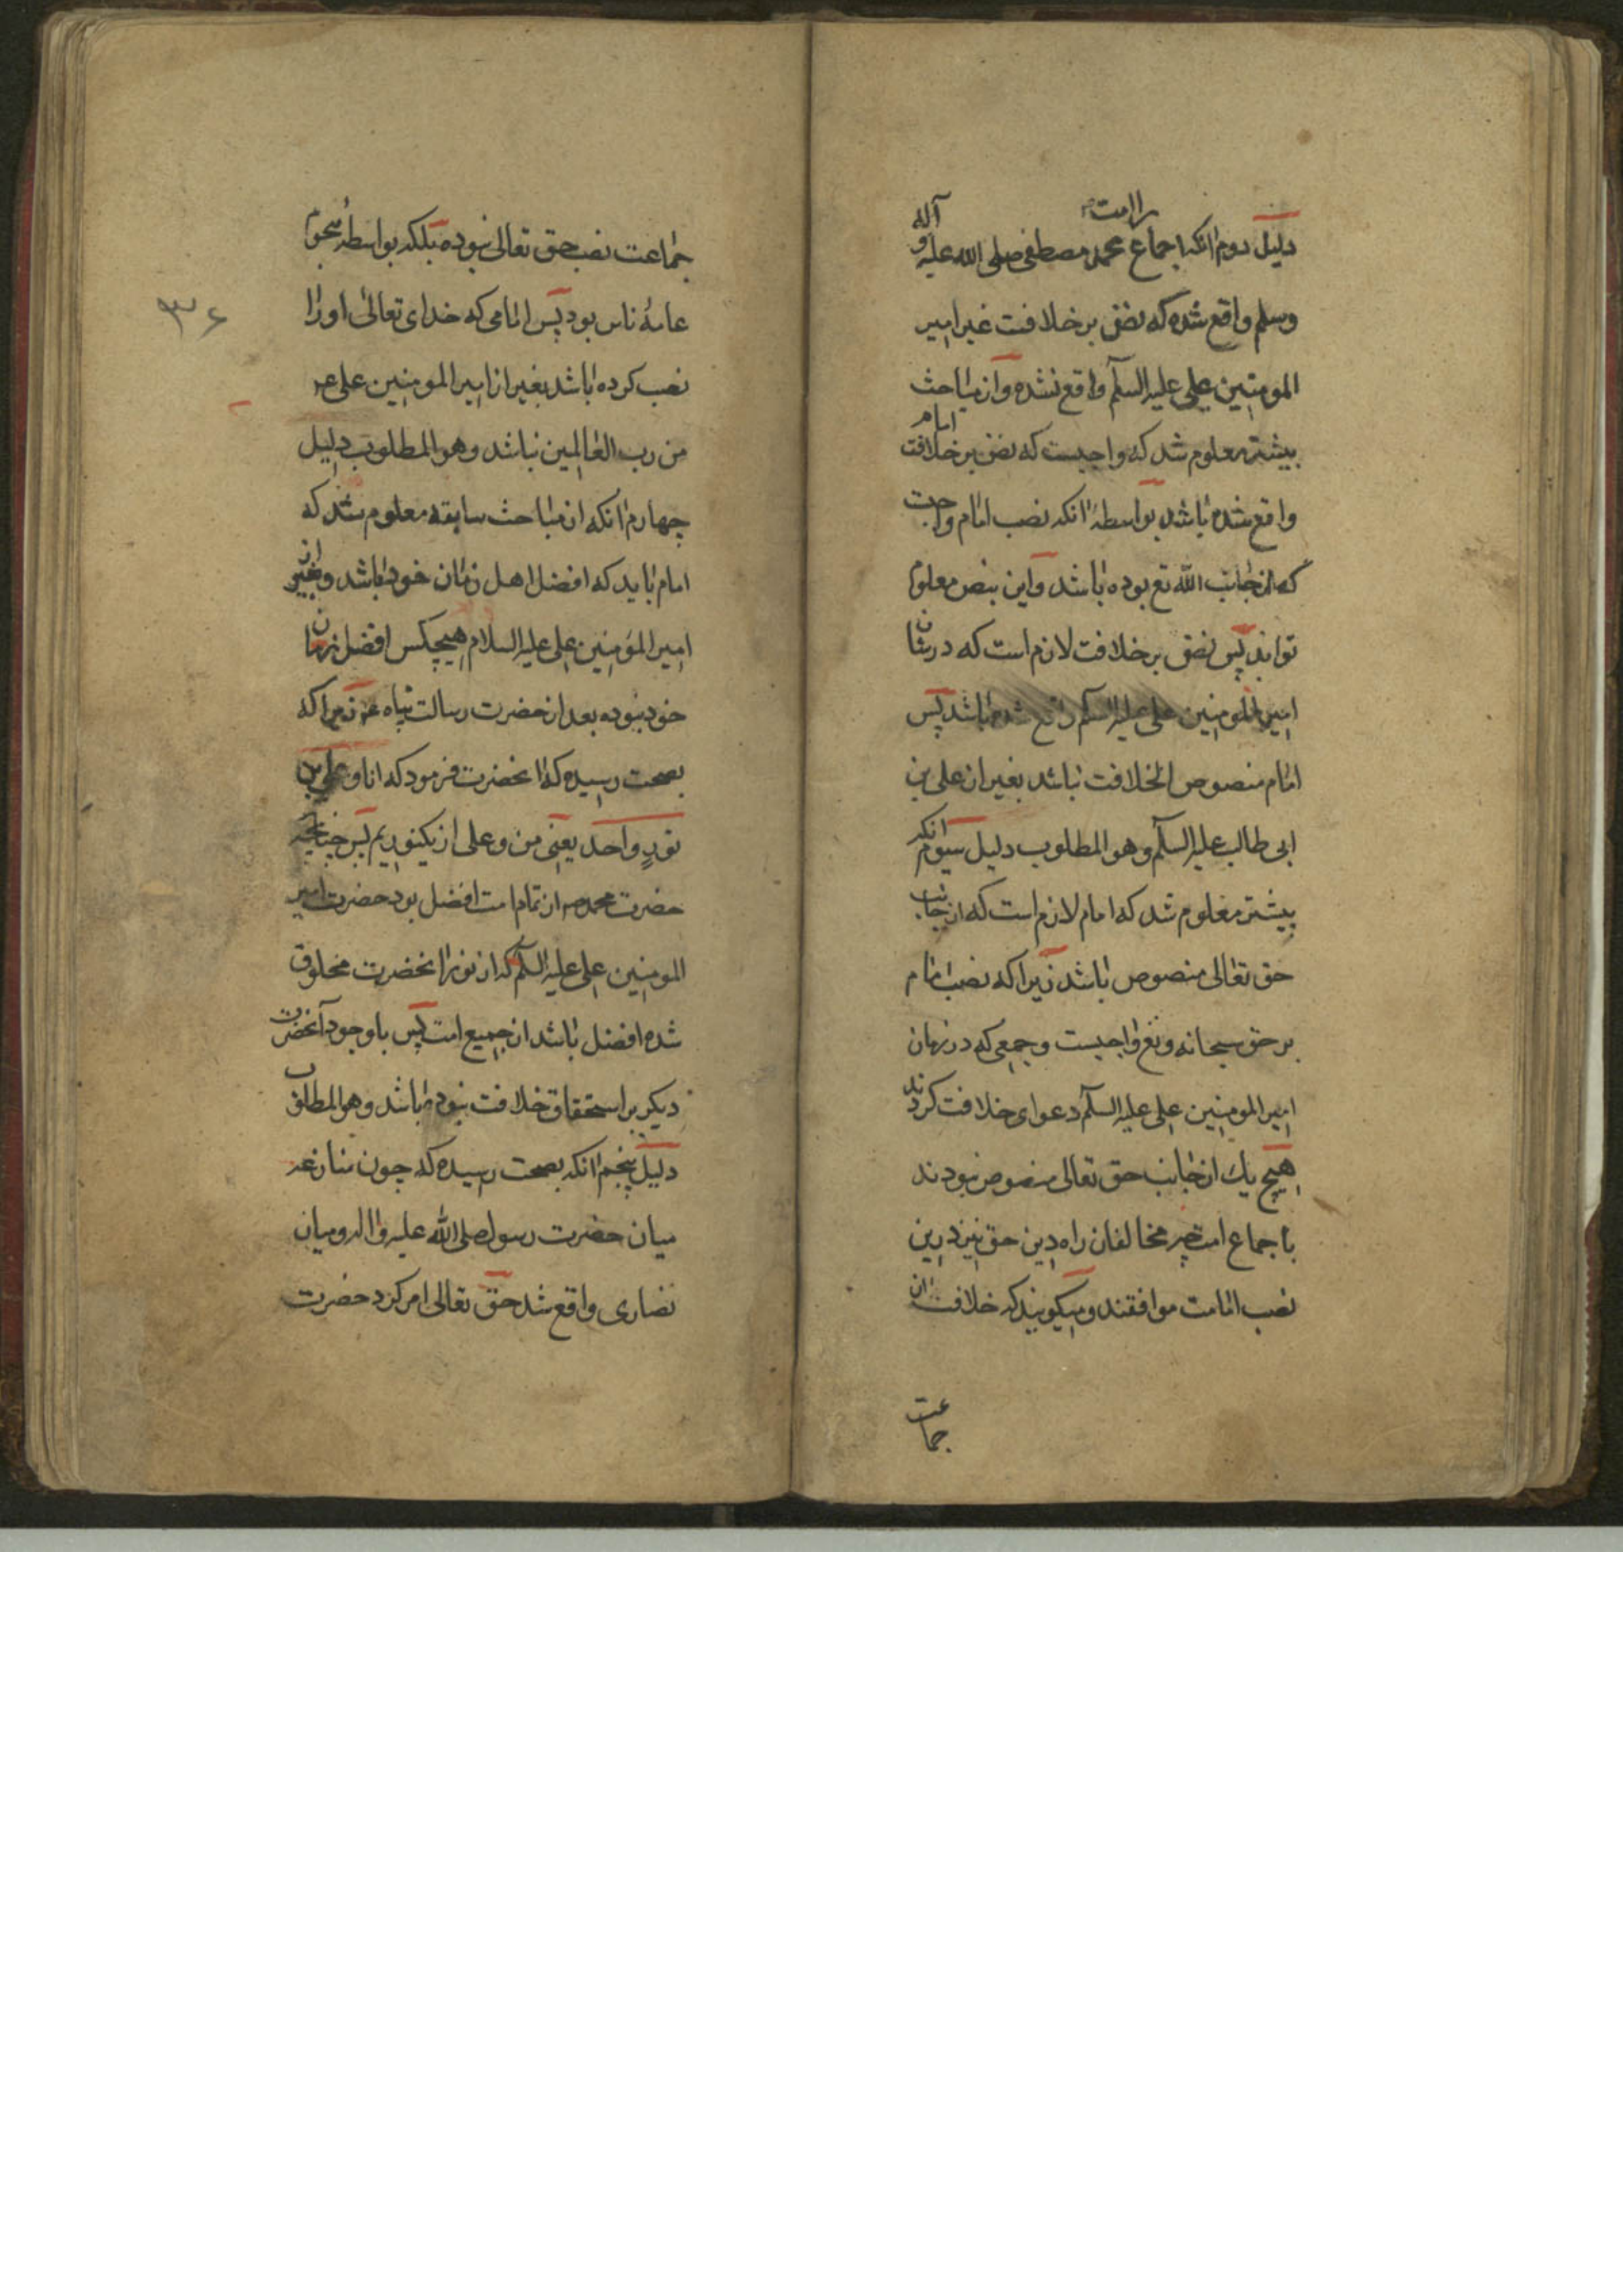 دلیل دوم آنکه باجماع امت محمد مصطفی صلی الله علیه و آله
وسلم واقع شده که نص بر خلافت غیر امیر
المومنین علی علیه السلم واقع نشده و از مباحث
پیشتر معلوم شد که واجبست که نص بر خلافت امام
واقع شده باشد بواسطهٔ انکه نصب امام واجبست
که از جانب الله تع بوده باشد و این بنص معلوم
تواند پس نص بر خلافت لازم است که در شان
امیر المومنین علی علیه السلم واقع شده باشد پس
امام منصوص الخلافت نباشد بغیر از علی بن
ابی طالب علیه السلم وهو المطلوب دلیل سیوم انکه
پیشتر معلوم شد که امام لازم است که از جانب
حق تعالی منصوص باشد زیرا که نصب امام
بر حق سبحانه و تع واجبست و جمعی که در زمان
امیر المومنین علی علیه السلم دعوای خلافت کردند
هیچ یک از جانب حق تعالی منصوص نبودند
باجماع امت چه مخالفان راه دین حق نیز درین
نصب امامت موافقند و میگویند که خلافت ان
جماعت
۳۶
جماعت نصب حق تعالی نبوده بلکه بواسطهٔ هجوم
عامهٔ ناس بود پس امامی که خدای تعالی او را
نصب کرده باشد بغیر از امیر المومنین علی ع
من رب العالمین نباشد وهو المطلوب دلیل
چهارم انکه از مباحث سابقه معلوم شد که
امام باید که افضل اهل زمان خود باشد و بغیر از
امیر المومنین علی علیه السلام هیچکس افضل زمان
خود نبوده بعد از حضرت رسالت پناه ع زیرا که
بصحت رسیده که انحضرت فرمود که انا و علی من
نور واحد یعنی من و علی از یکنوریم پس چنانچه
حضرت محمد ص از تمام امت افضل بود حضرت امیر
المومنین علی علیه السلم که از نور انحضرت مخلوق
شده افضل باشد از جمیع امت پس باوجود آنحضرت
دیگر برا استحقاق خلافت نبوده باشد وهو المطلوب
دلیل پنجم انکه بصحت رسیده که چون منازعه
میان حضرت رسول صلی الله علیه واله و میان
نصاری واقع شد حق تعالی امر کرد حضرت